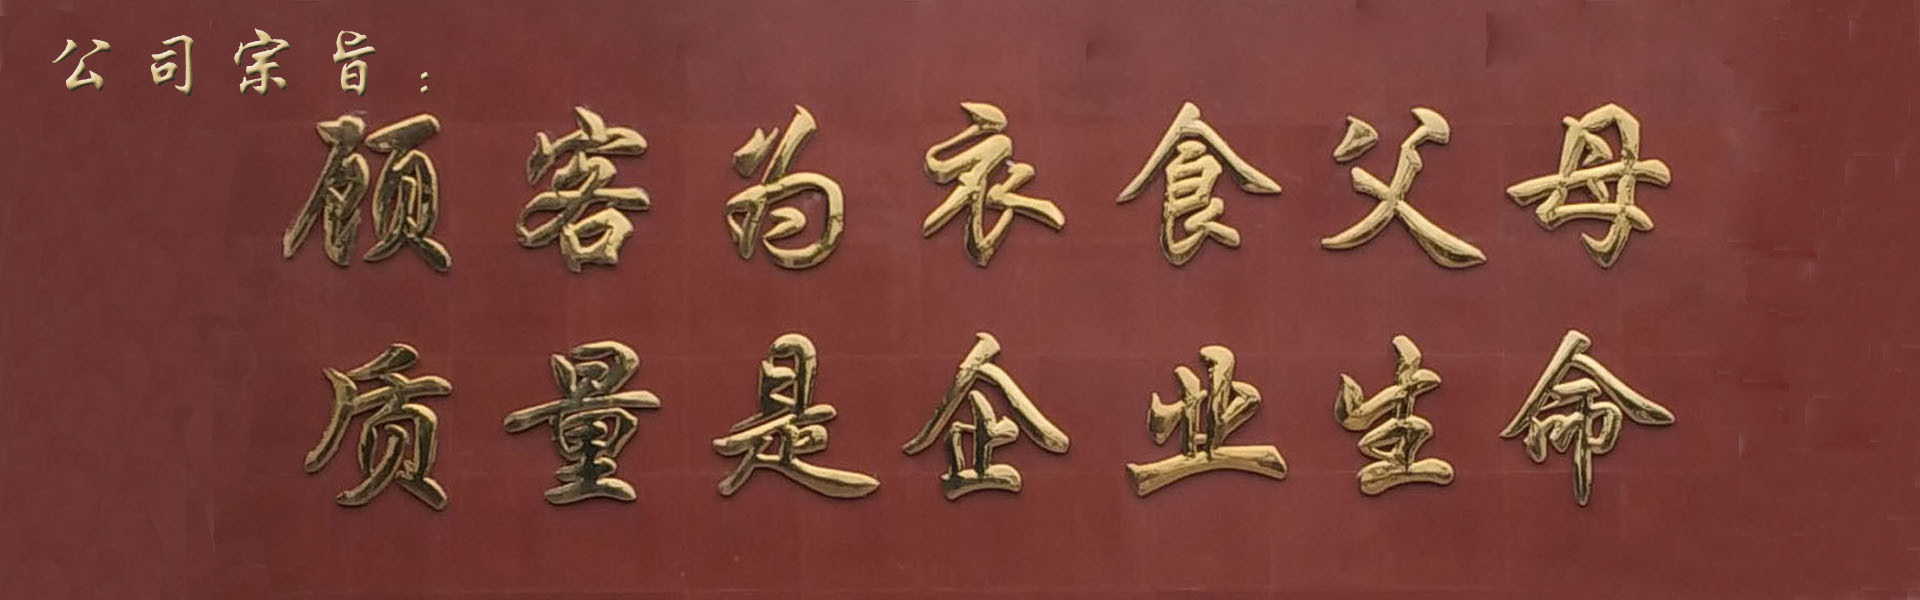 公司宗旨:
顾客为衣食父母
质量是企业生命